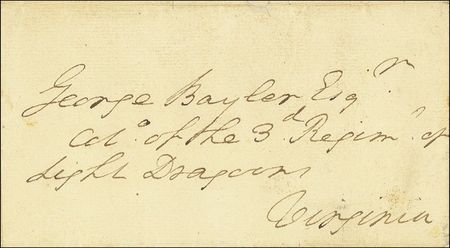 George Bayler Esqr
Colo. of the 3d Regimt of
Light Dragoons
Virginia